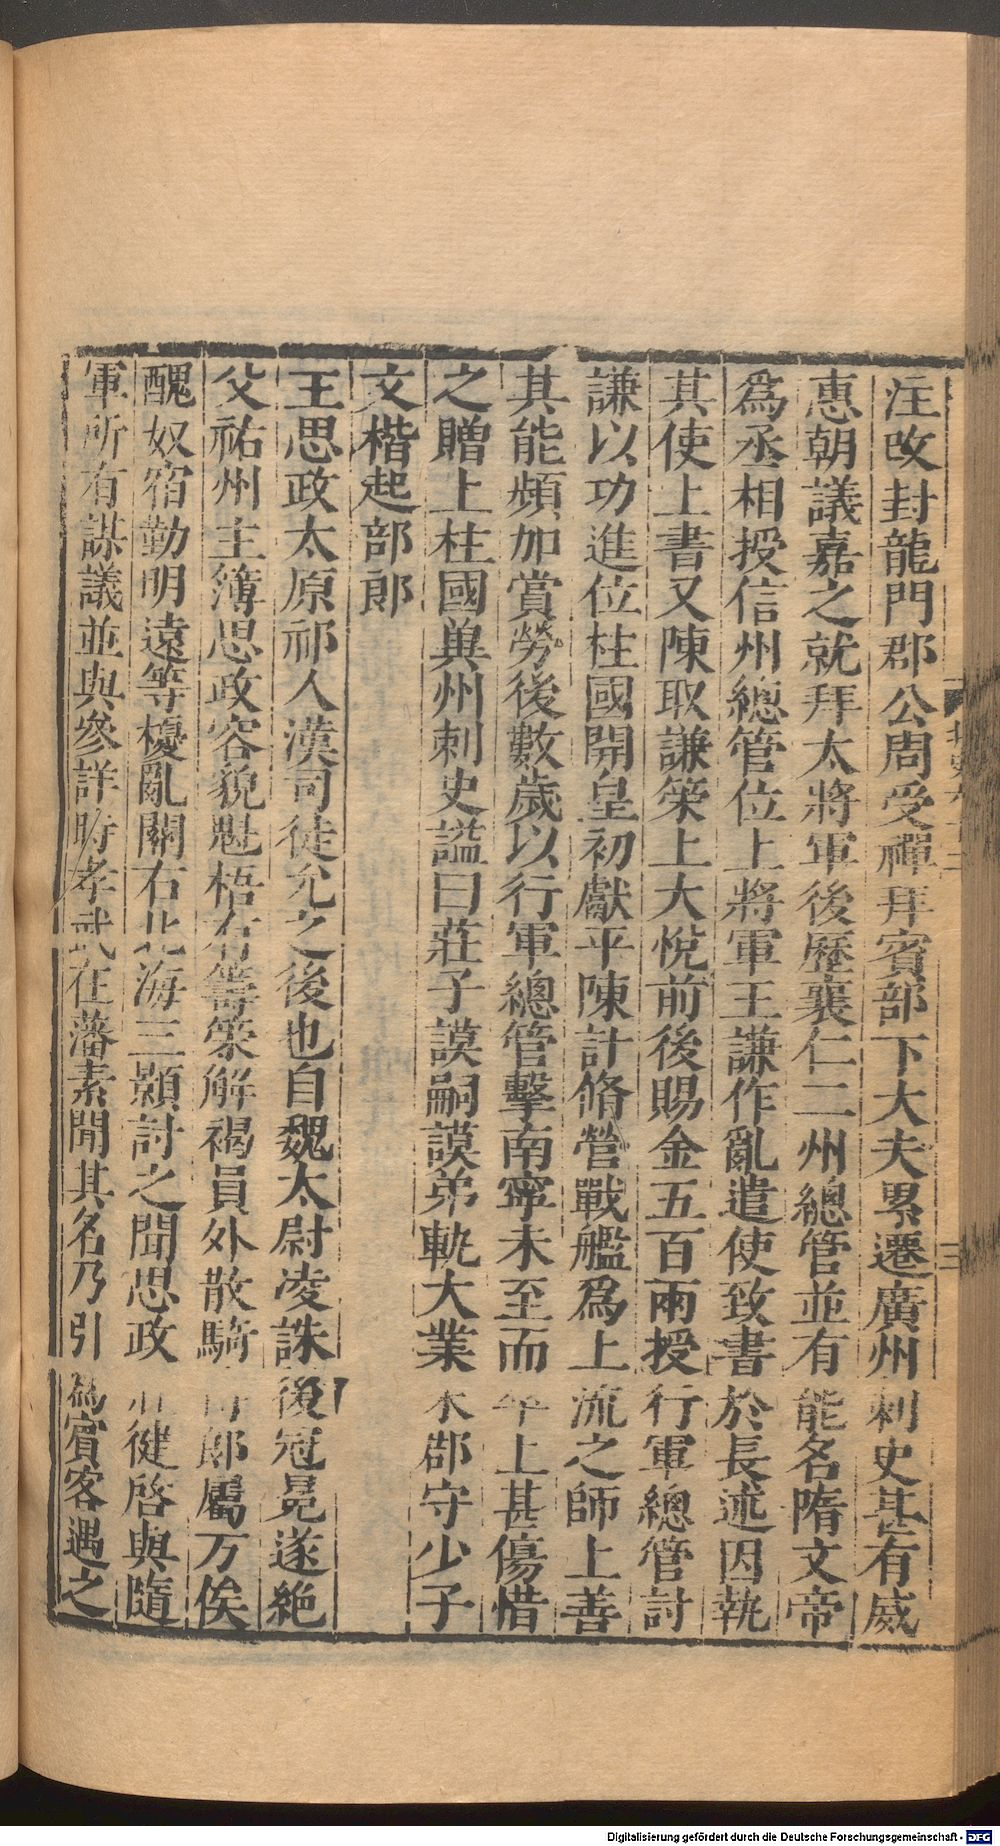 注改封龍門郡公周受禪拜賓部下大夫累遷廣州刺史甚有威
惠朝議嘉之就拜大將軍後歷襄仁二州總管並有能名隋文帝
爲丞相授信州總管位上將軍王謙作亂遣使致書於長述因執
其使上書又陳取謙策上大悅前後賜金五百兩授行軍總管討
謙以功進位柱國開皇初獻平陳計脩營戰艦爲上流之師上善
其能頻加賞勞後數歲以行軍總管擊南寧未至而卒上甚傷惜
之贈上柱國兾州刺史謚曰莊子謨嗣謨弟軌大業末郡守少子
文楷起部郎
王思政太原祁人漢司徒允之後也自魏太尉凌誅後冠冕遂絶
父祐州主簿思政容貌魁梧有籌策解褐員外散騎侍郎屬万俟
醜奴宿勤明遠等擾亂關右北海王顥討之聞思政壯健啓與隨
軍所有謀議並與參詳時孝武在藩素聞其名乃引爲賓客遇之
三
Digitalisierung gefördert durch die Deutsche Forschungsgemeinschaft - DFG